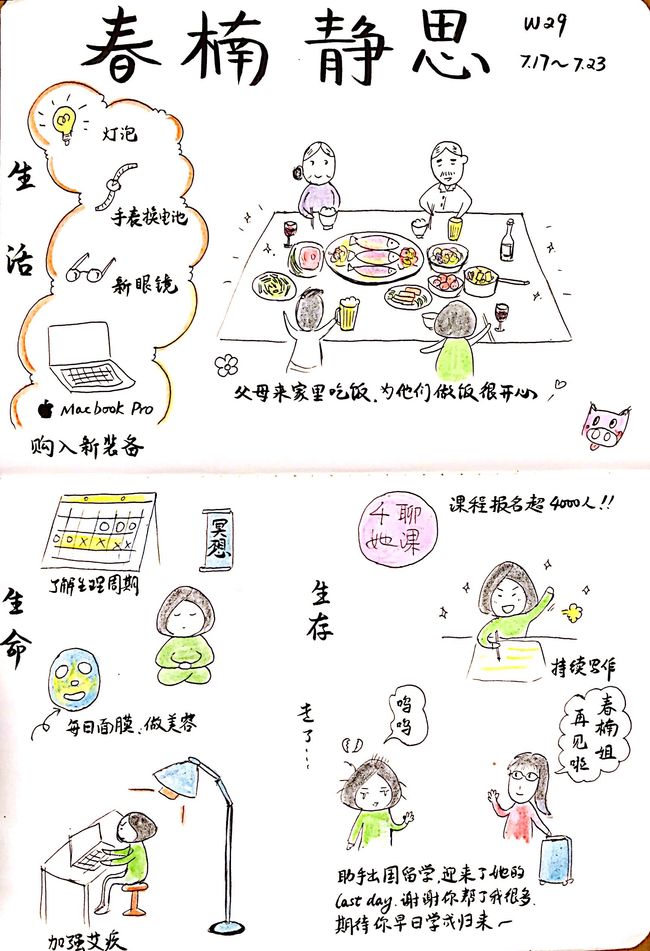 春楠静思
W29
7.17～7.23
生活
灯泡
手表换电池
新眼镜
Macbook Pro
购入新装备
父母来家里吃饭,为他们做饭很开心
生命
了解生理周期
冥想
每日面膜、做美容
加强艾疾
生存
4聊
她课
课程报名超4000人!!
持续写作
走了...
呜呜
春楠姐
再见啦
助手出国留学,迎来了她的
last day.谢谢你帮了我很多.
期待你早日学成归来~